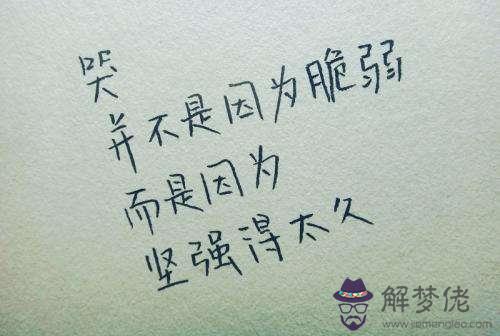 哭
并不是因为脆弱
而是因为
坚强得太久
解梦佬
www.semengleo.com